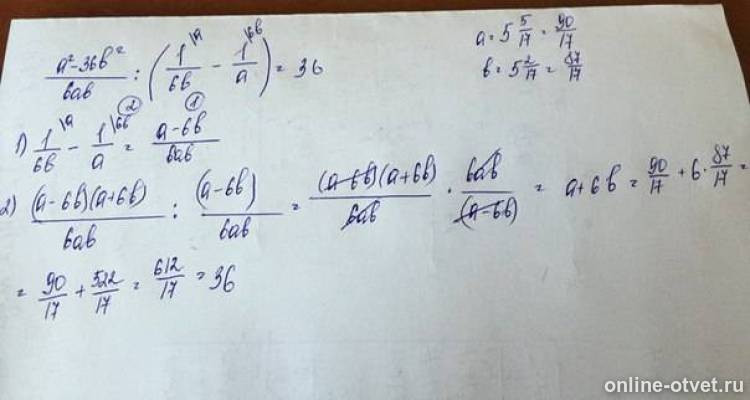 (a²-36b²)/(6ab) : (1/(6b) \a - 1/a \6b) = 36
a = 5 5/17 = 90/17
b = 5 2/17 = 87/17
② ①
1) 1/(6b) \a - 1/a \6b = (a-6b)/(6ab)
2) ((a-6b)(a+6b))/(6ab) : (a-6b)/(6ab) = ((a-6b)(a+6b))/(6ab) · (6ab)/(a-6b) = a+6b = 90/17 + 6·87/17 =
= 90/17 + 522/17 = 612/17 = 36
online-otvet.ru